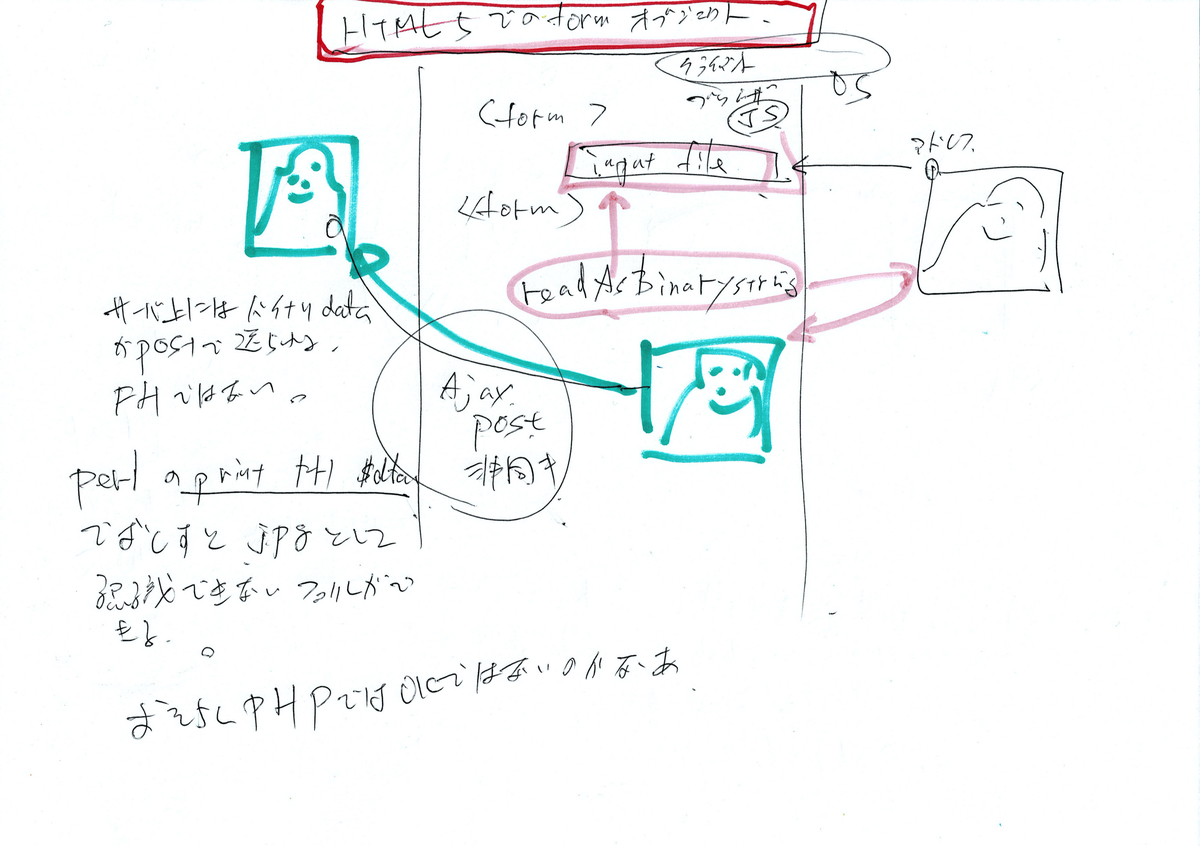 HTML5でのformオブジェクト.
クライアント
OS
ブラウザ
JS
<form>
input file
アドレス
<form>
readAsBinarystring
サーバ上にはバイナリdata
がpostで送られる.
FHではない。
Ajax.
post
非同キ
perlのprint FH $data
でだしすと jpgとして
認識できない ファイルがで
きる.
おそらくPHPではOKではないのかなあ